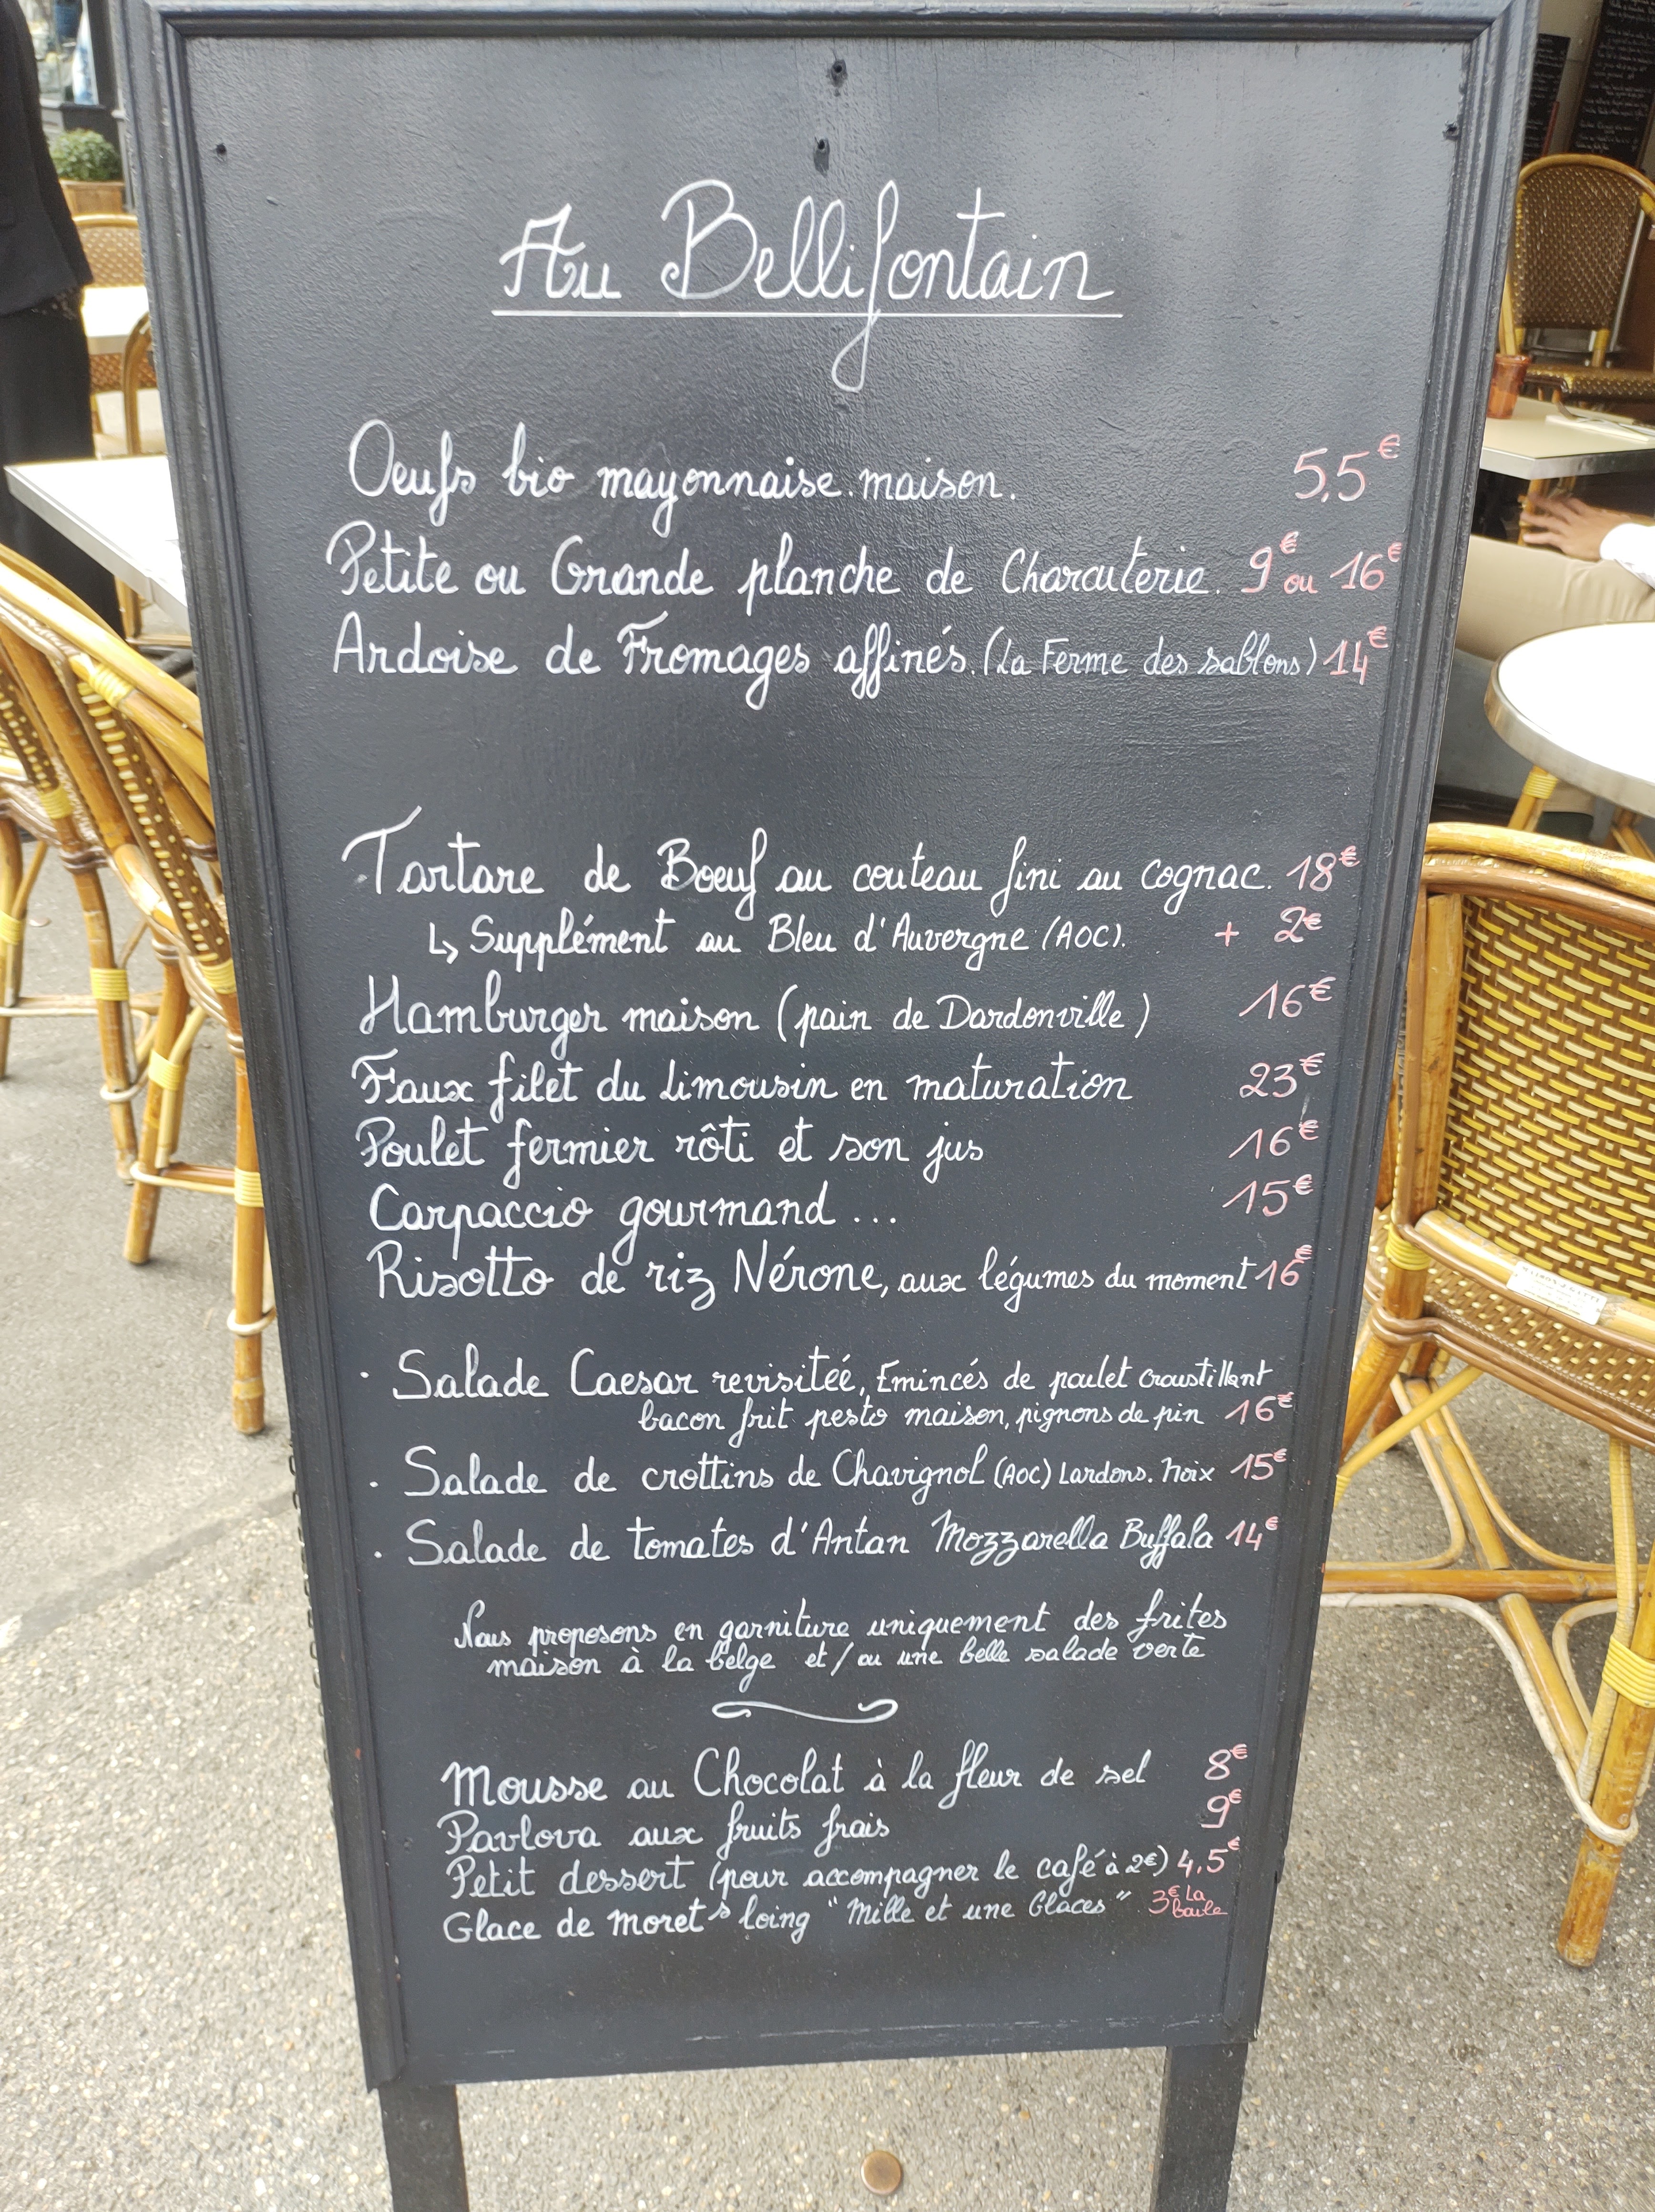 Au Bellifontain
Oeufs bio mayonnaise maison. 5,5€
Petite ou Grande planche de Charcuterie. 9€ ou 16€
Ardoise de Fromages affinés. (La Ferme des sablons) 14€
Tartare de Boeuf au couteau fini au cognac. 18€
↳ Supplément au Bleu d'Auvergne (AOC). + 2€
Hamburger maison (pain de Dardonville) 16€
Faux filet du Limousin en maturation 23€
Poulet fermier rôti et son jus 16€
Carpaccio gourmand ... 15€
Risotto de riz Nérone, aux légumes du moment 16€
· Salade Caesar revisiteé, Emincés de poulet croustillant
bacon frit pesto maison, pignons de pin 16€
· Salade de crottins de Chavignol (AOC) Lardons. Noix 15€
· Salade de tomates d'Antan Mozzarella Buffala 14€
Nous proposons en garniture uniquement des frites
maison à la belge et/ou une belle salade verte
Mousse au Chocolat à la fleur de sel 8€
Pavlova aux fruits frais 9€
Petit dessert (pour accompagner le café à 2€) 4,5€
Glace de Moret s loing "Mille et une Glaces" 3€ La boule